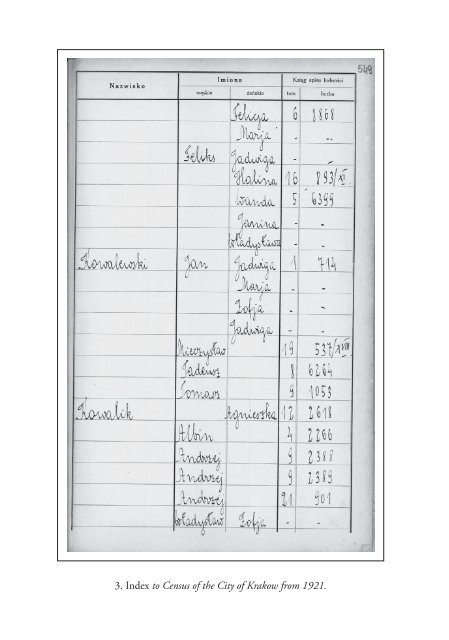 549
Nazwisko Imiona Księgi spisu ludności
męskie żeńskie tom liczba
Felicja 6 8868
Marja - -
Feliks Jadwiga - -
Halina 16 893/XI
Wanda 5 6399
Janina - -
Władysława - -
Kowalewski Jan Jadwiga 1 714
Marja - -
Zofja - -
Jadwiga - -
Mieczysław 19 537/XVIII
Tadeusz 8 6264
Tomasz 9 1053
Kowalik Agnieszka 12 2618
Albin 4 2266
Andrzej 9 2388
Andrzej 9 2389
Andrzej 21 901
Władysław Zofja - -
3. Index to Census of the City of Krakow from 1921.